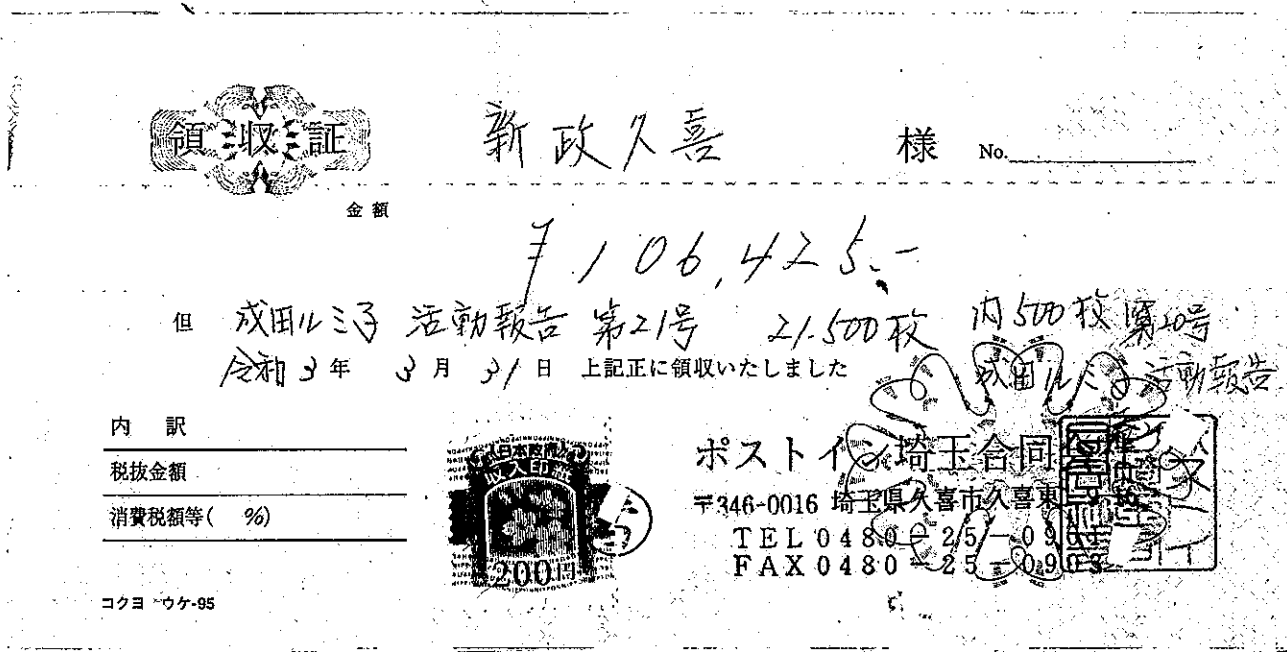 領収証 新政久喜 様 No.
金額
¥106,425.-
但 成田ルミ子 活動報告 第21号 21.500枚 内500枚 第20号
成田ルミ子 活動報告
令和3年 3月 31日 上記正に領収いたしました
内 訳
税抜金額
消費税額等( %)
日本政府
収入印紙
200円
ポストイン埼玉合同
〒346-0016 埼玉県久喜市久喜東
TEL 0480-25-090
FAX 0480-25-0903
コクヨ ウケ-95